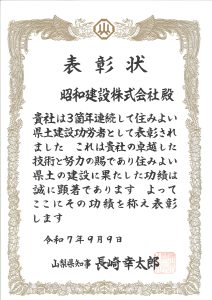 表彰状
昭和建設株式会社殿
貴社は3箇年連続して住みよい
県土建設功労者として表彰され
ました　これは貴社の卓越した
技術と努力の賜であり住みよい
県土の建設に果たした功績は
誠に顕著であります　よって
ここにその功績を称え表彰
します
令和7年9月9日
山梨県知事　長崎幸太郎